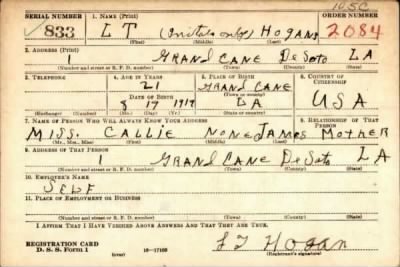 105C
SERIAL NUMBER 1. NAME (Print) ORDER NUMBER
833 L T (Initials only) HOGANS 2084
(First) (Middle) (Last)
2. ADDRESS (Print)
1 GRAND CANE DeSoto LA
(Number and street or R. F. D. number) (Town) (County) (State)
3. TELEPHONE 4. AGE IN YEARS 5. PLACE OF BIRTH 6. COUNTRY OF CITIZENSHIP
21 GRAND CANE
DATE OF BIRTH (Town or county)
8 17 1919 LA USA
(Exchange) (Number) (Mo.) (Day) (Yr.) (State or country)
7. NAME OF PERSON WHO WILL ALWAYS KNOW YOUR ADDRESS 8. RELATIONSHIP OF THAT PERSON
MISS. CALLIE NONE JAMES MOTHER
(Mr., Mrs., Miss) (First) (Middle) (Last)
9. ADDRESS OF THAT PERSON
1 GRAND CANE DeSoto LA
(Number and street or R. F. D. number) (Town) (County) (State)
10. EMPLOYER'S NAME
SELF
11. PLACE OF EMPLOYMENT OR BUSINESS
(Number and street or R. F. D. number) (Town) (County) (State)
I AFFIRM THAT I HAVE VERIFIED ABOVE ANSWERS AND THAT THEY ARE TRUE.
REGISTRATION CARD
D. S. S. Form 1 (over) LT HOGAN
(Registrant's signature)